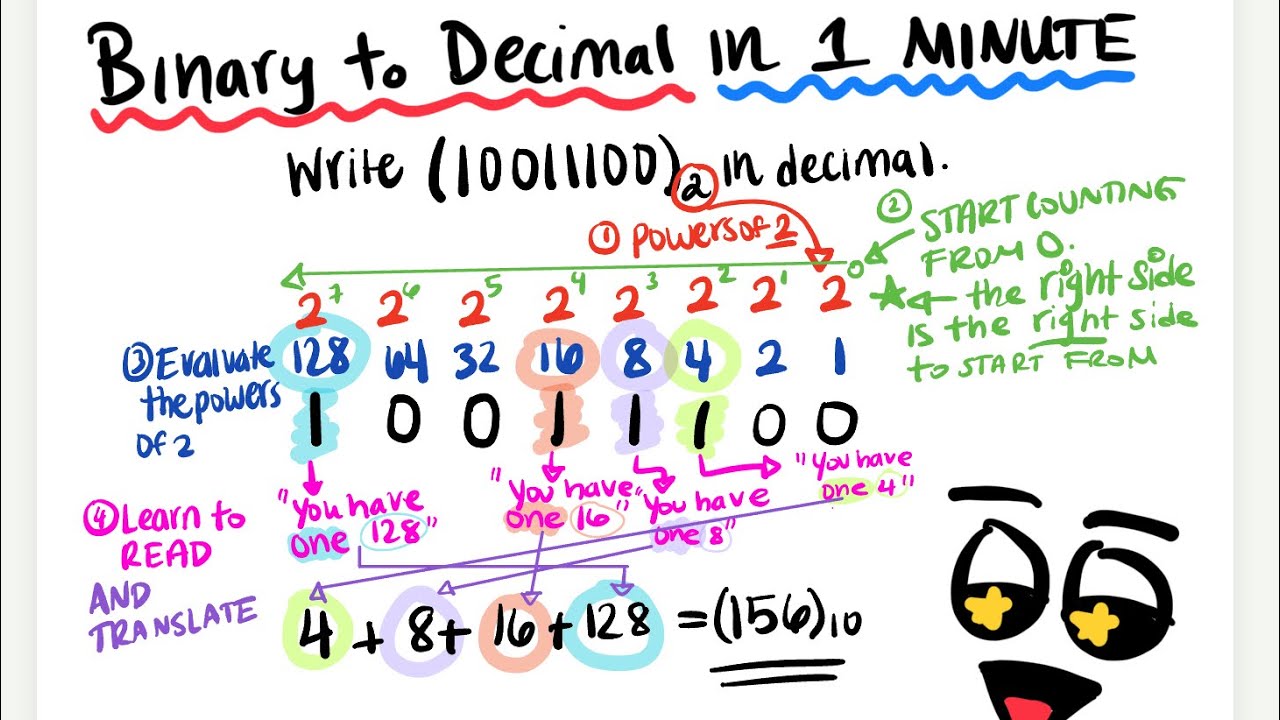 Binary to Decimal in 1 MINUTE
Write (10011100)₂ in decimal.
① Powers of 2
② START COUNTING
FROM 0.
★ ← the right side
is the right side
to START FROM
2⁷ 2⁶ 2⁵ 2⁴ 2³ 2² 2¹ 2⁰
③ Evaluate
the powers
of 2
128 64 32 16 8 4 2 1
1 0 0 1 1 1 0 0
④ Learn to
READ
AND
TRANSLATE
"You have
one 128"
"You have
one 16"
"You have
one 8"
"You have
one 4"
4 + 8 + 16 + 128 = (156)₁₀